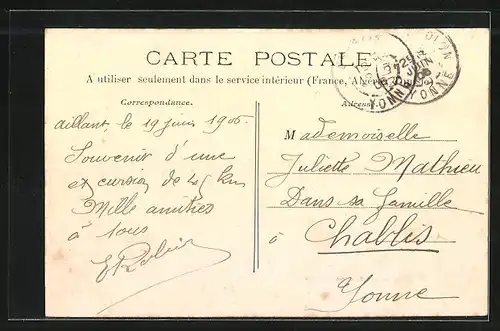 CARTE POSTALE
A utiliser seulement dans le service intérieur (France, Algérie
Correspondance.
Adresse
aillant, le 19 juin 1906
Souvenir d'une
excursion de 45 km
Mille amitiés
à tous
Mademoiselle
Juliette Mathieu
Dans sa famille
à Chablis
Yonne
YONNE
JUIN
06